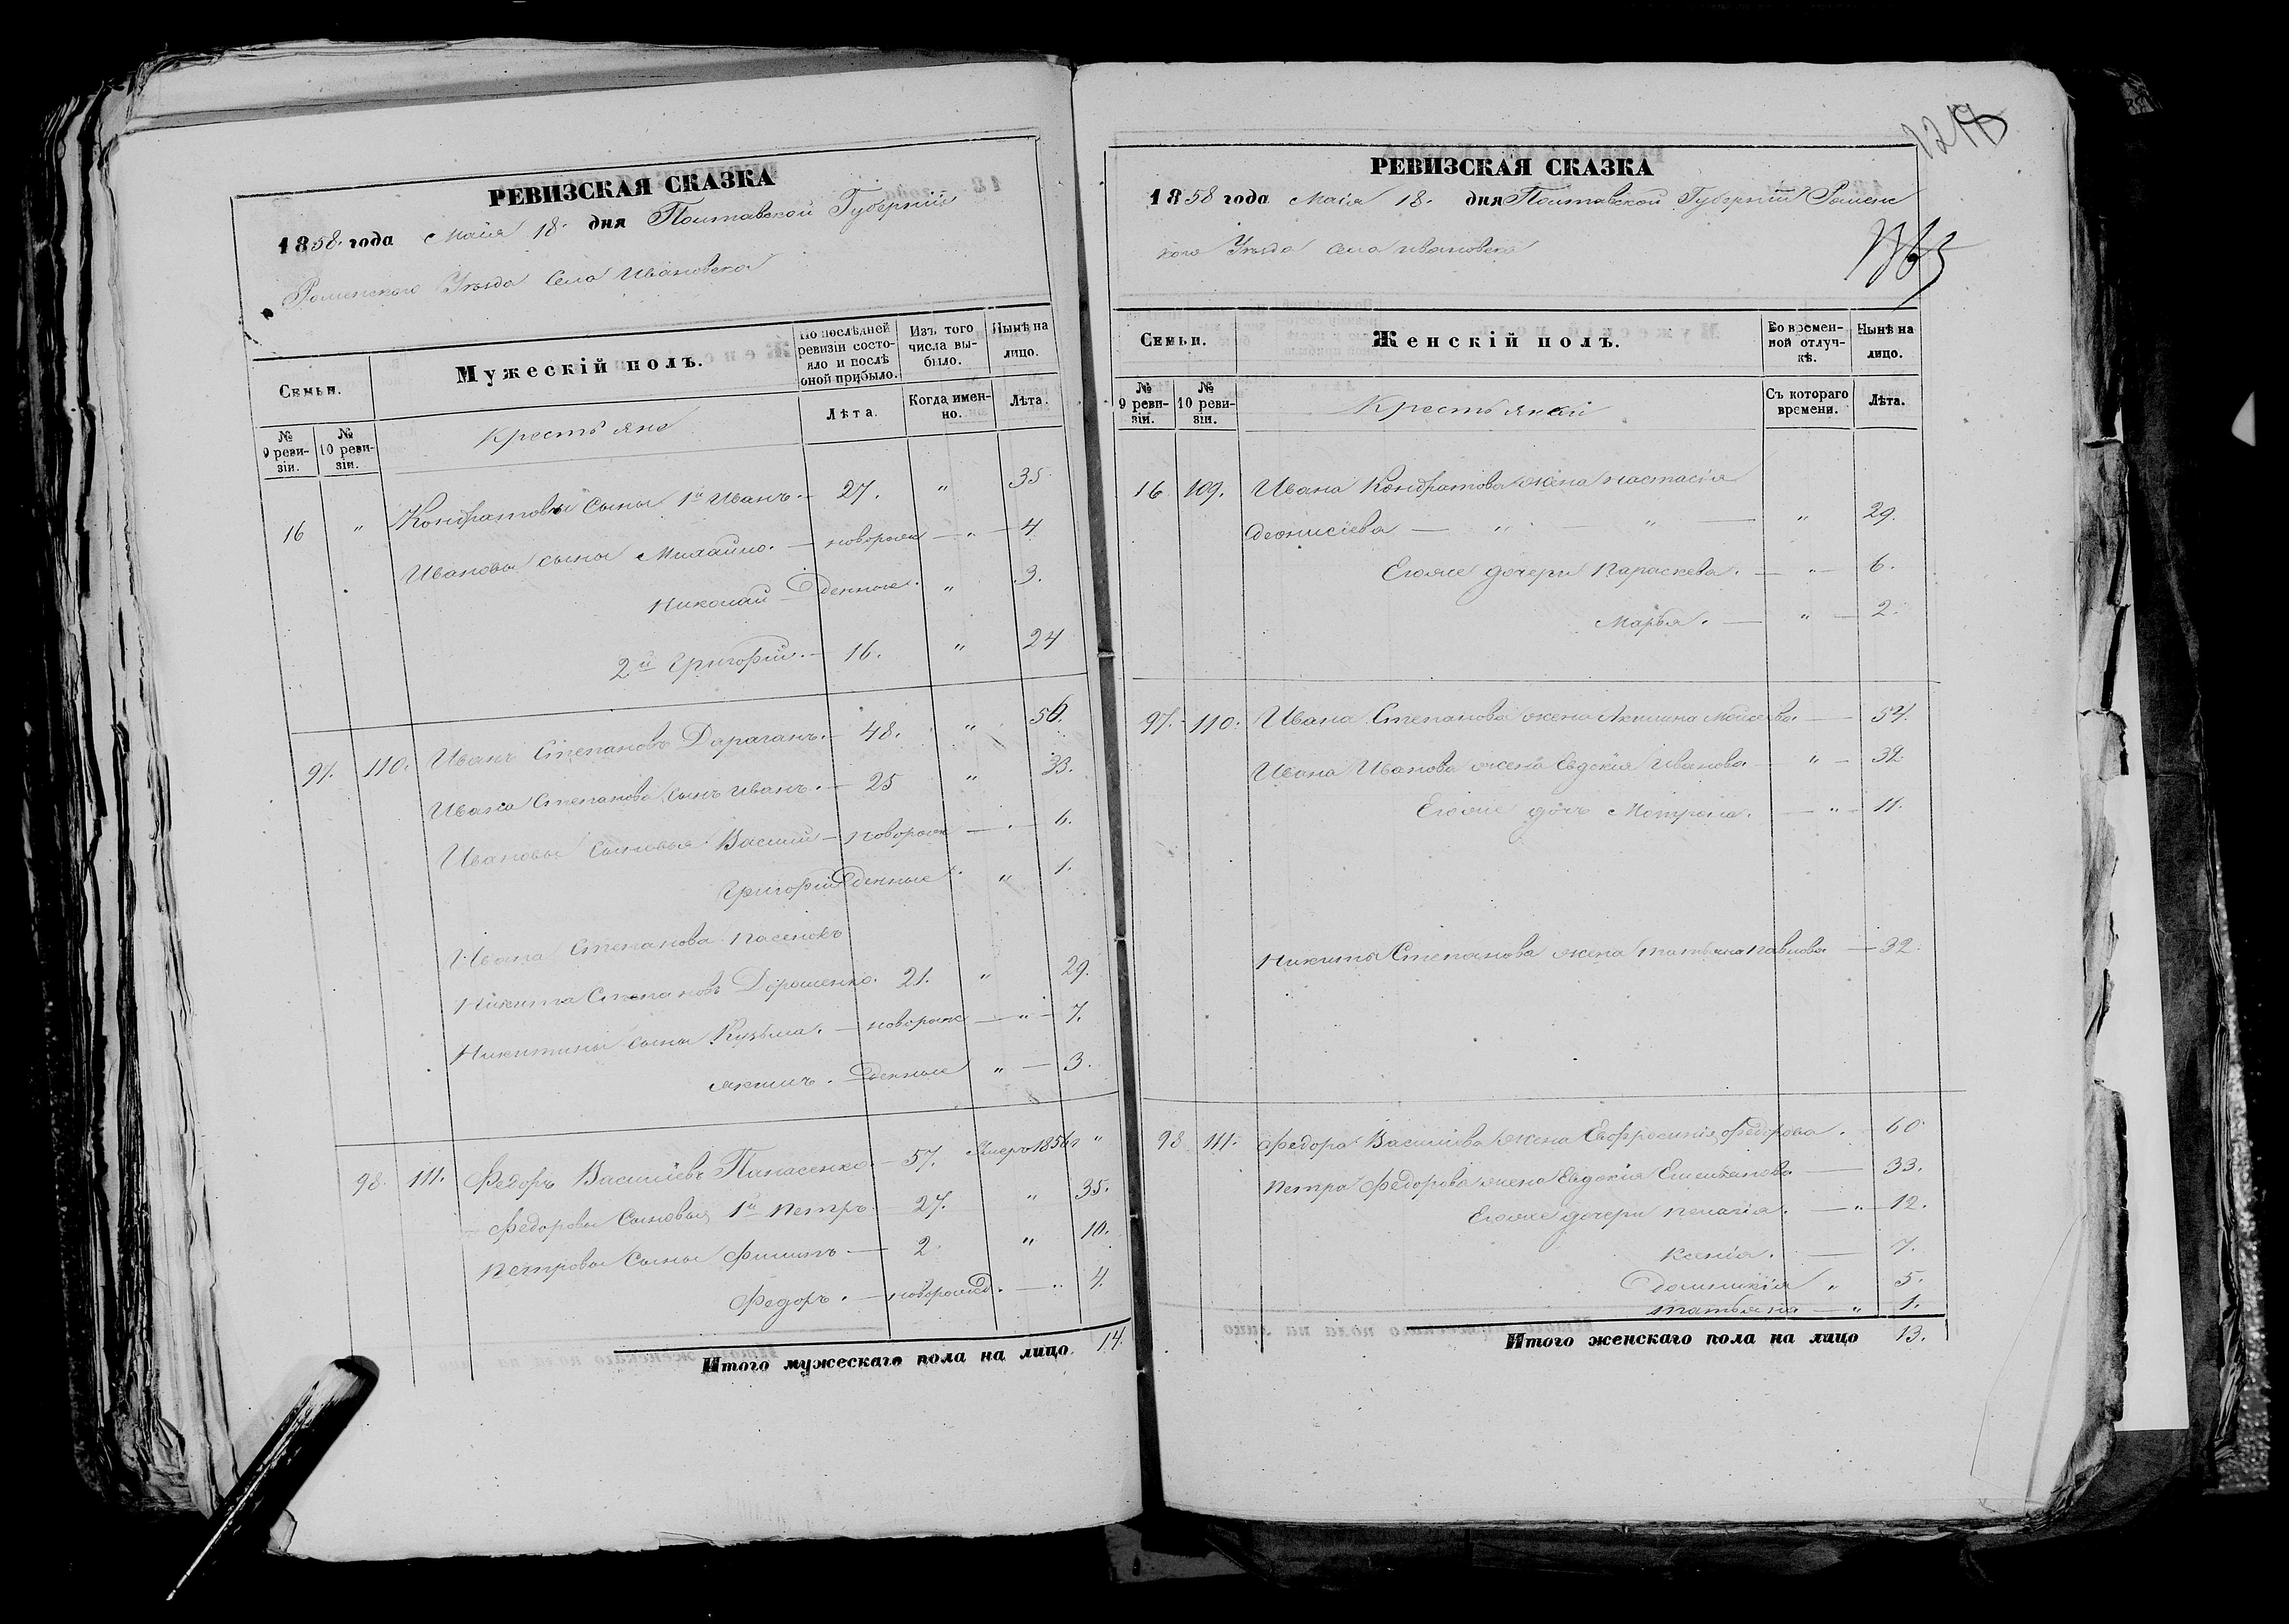 РЕВИЗСКАЯ СКАЗКА
1858 года Маія 18 дня Полтавской Губерніи
Роменскаго Уѣзда Села Ивановска
Семьи.
Мужескій полъ.
По послѣдней ревизіи состояло и послѣ оной прибыло.
Изъ того числа выбыло.
Нынѣ на лицо.
№ 9 ревизіи.
№ 10 ревизіи.
Крестьяне
Лѣта.
Когда именно.
Лѣта.
16 " Кондратовы сыны 1й Иванъ. 27. " 35
Ивановы сыны Михайло. новорож " 4
Николай денные. " 3.
2й Григорій. 16. " 24
97. 110. Иванъ Степановъ Дараганъ. 48. " 56.
Ивана Степанова сынъ Иванъ. 25 " 33.
Ивановы сыновья Василій новорож 6.
Григорій денные " 1.
Ивана Степанова пасенокъ
Никита Степановъ Дорошенко. 21. " 29.
Никитины сыны Кузьма. новорож " 7.
Якимъ. денные " 3.
98. 111. Федоръ Василіевъ Панасенко. 57. Умеръ 1856 г "
Федоровы сыновья 1й Петръ 27. " 35.
Петровы сыны Филипъ 2 " 10.
Федоръ. новорожд. " 4.
Итого мужескаго пола на лицо 14.
РЕВИЗСКАЯ СКАЗКА
1858 года Маія 18. дня Полтавской Губерніи Роменс
каго Уѣзда Села Ивановска
Семьи.
Женскій полъ.
Во временной отлучкѣ.
Нынѣ на лицо.
№ 9 ревизіи.
№ 10 ревизіи.
Крестьянки
Съ котораго времени.
Лѣта.
16. 109. Ивана Кондратова жена Настасія
Деонисіева " " " 29.
Егоже дочери Параскева. " 6.
Марья. " 2.
97. 110. Ивана Степанова жена Акилина Моисеева 57.
Ивана Иванова жена Евдокія Иванова " 32
Егоже дочь Мотрона. " 11.
Никиты Степанова жена Татьяна Павлова 32.
98 111. Федора Василіева жена Евфросинія Федорова. 60
Петра Федорова жена Евдокія Емельянова 33.
Егоже дочери Пелагія. " 12.
Ксенія. 7.
Домникія " 5.
Татьяна " 1.
Итого женскаго пола на лицо 13.